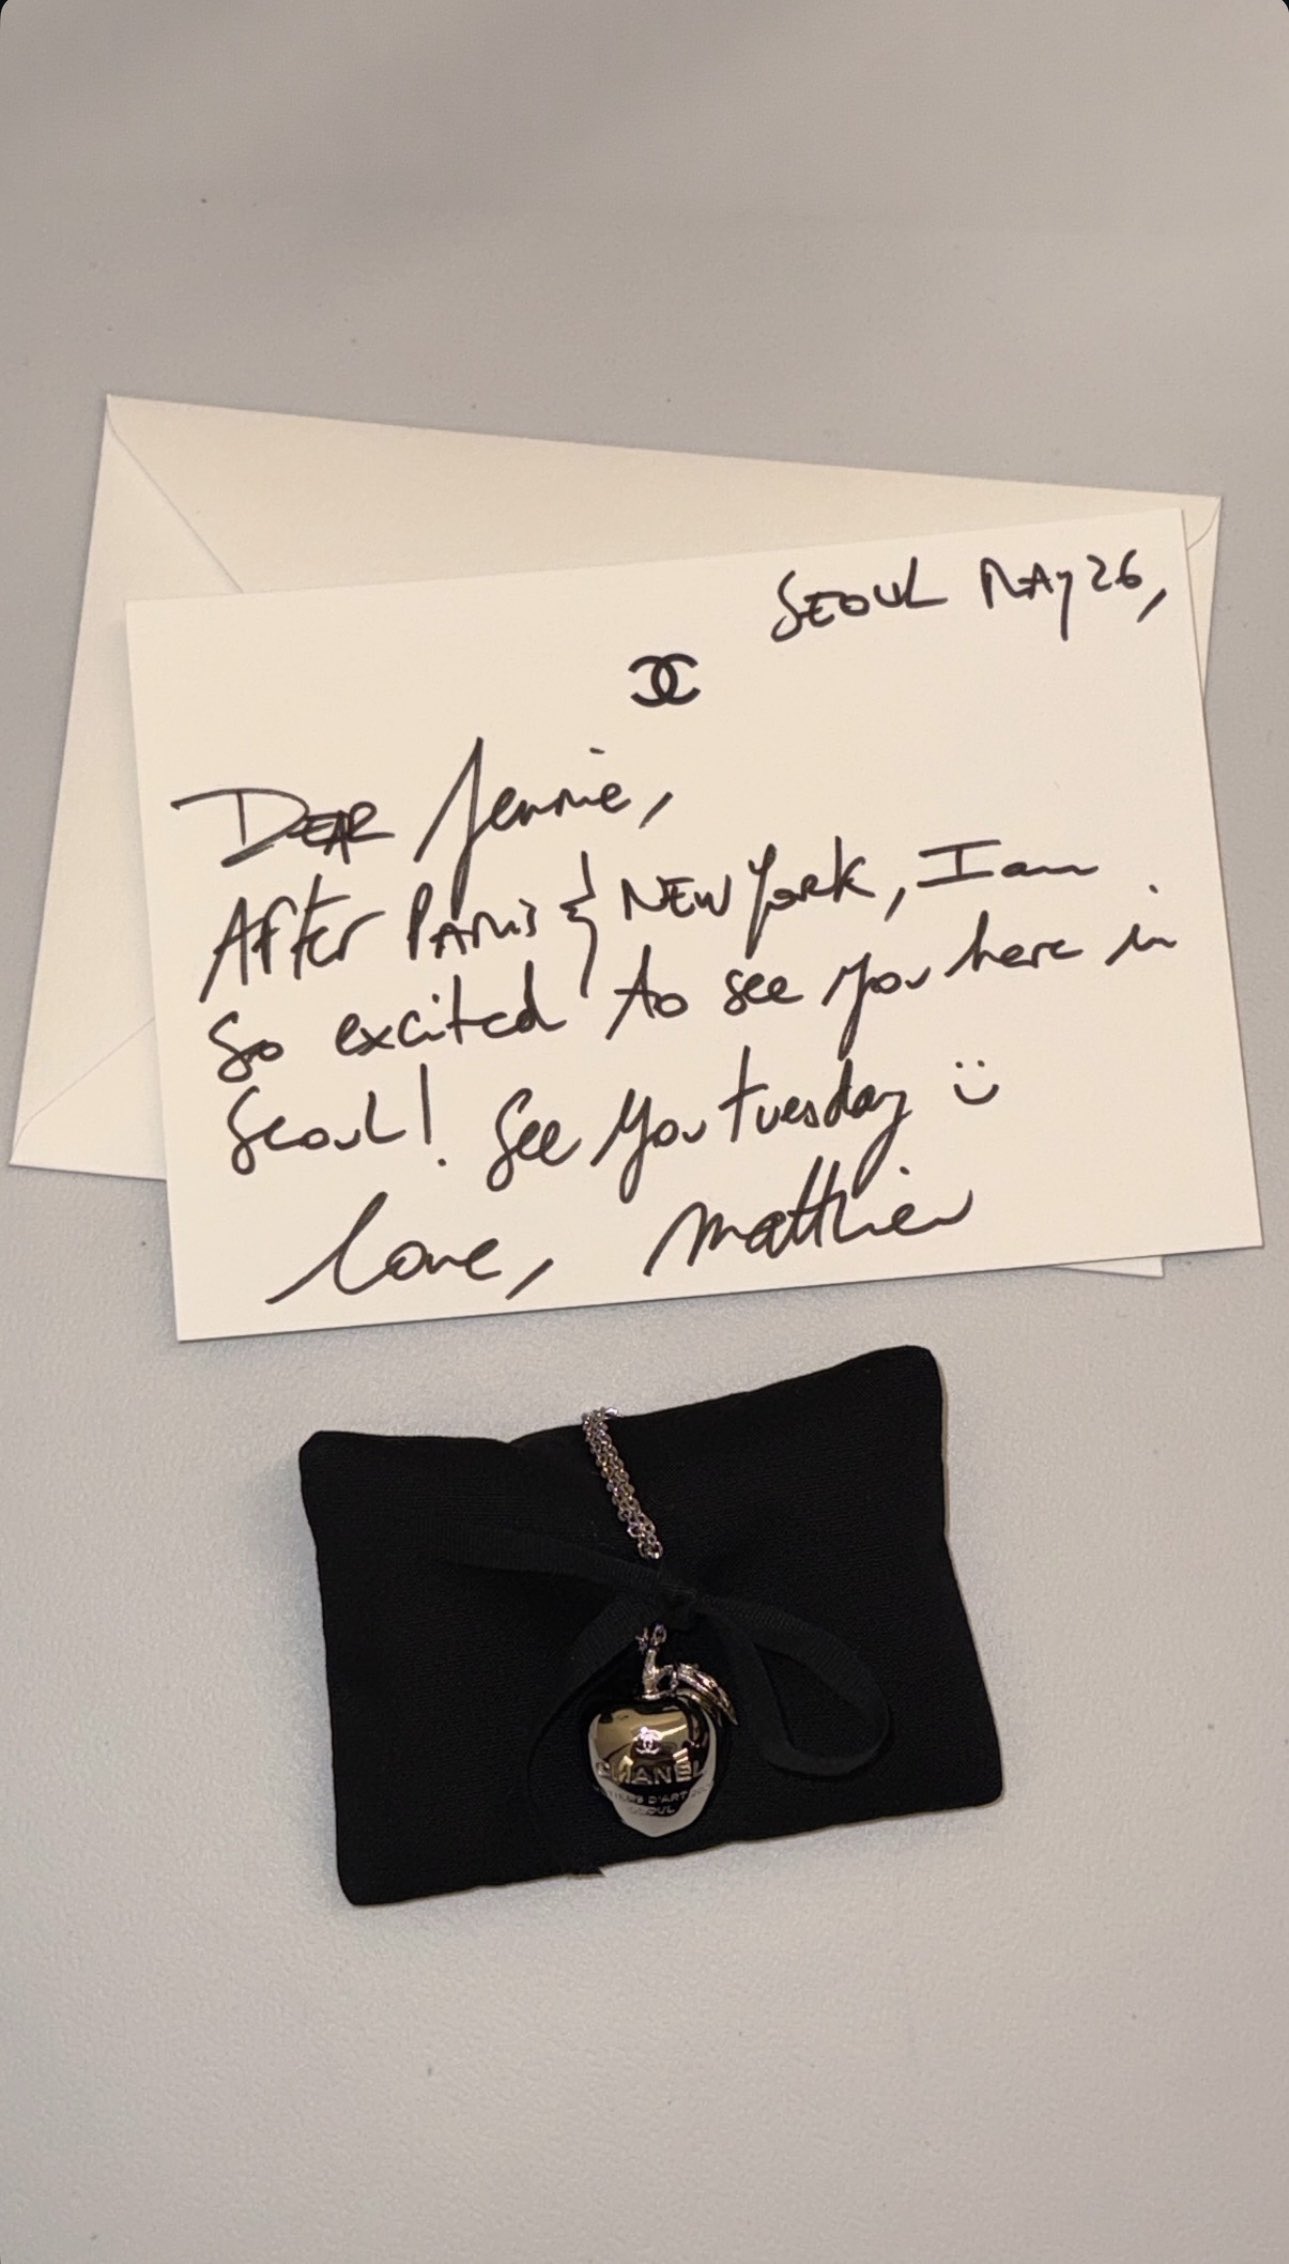 SEOUL MAY 26,
DEAR Jennie,
AFTER PARIS & NEW YORK, I am
so excited to see you here in
Seoul! See you tuesday :)
love, Matthieu
CHANEL
MÉTIERS D'ART
SEOUL